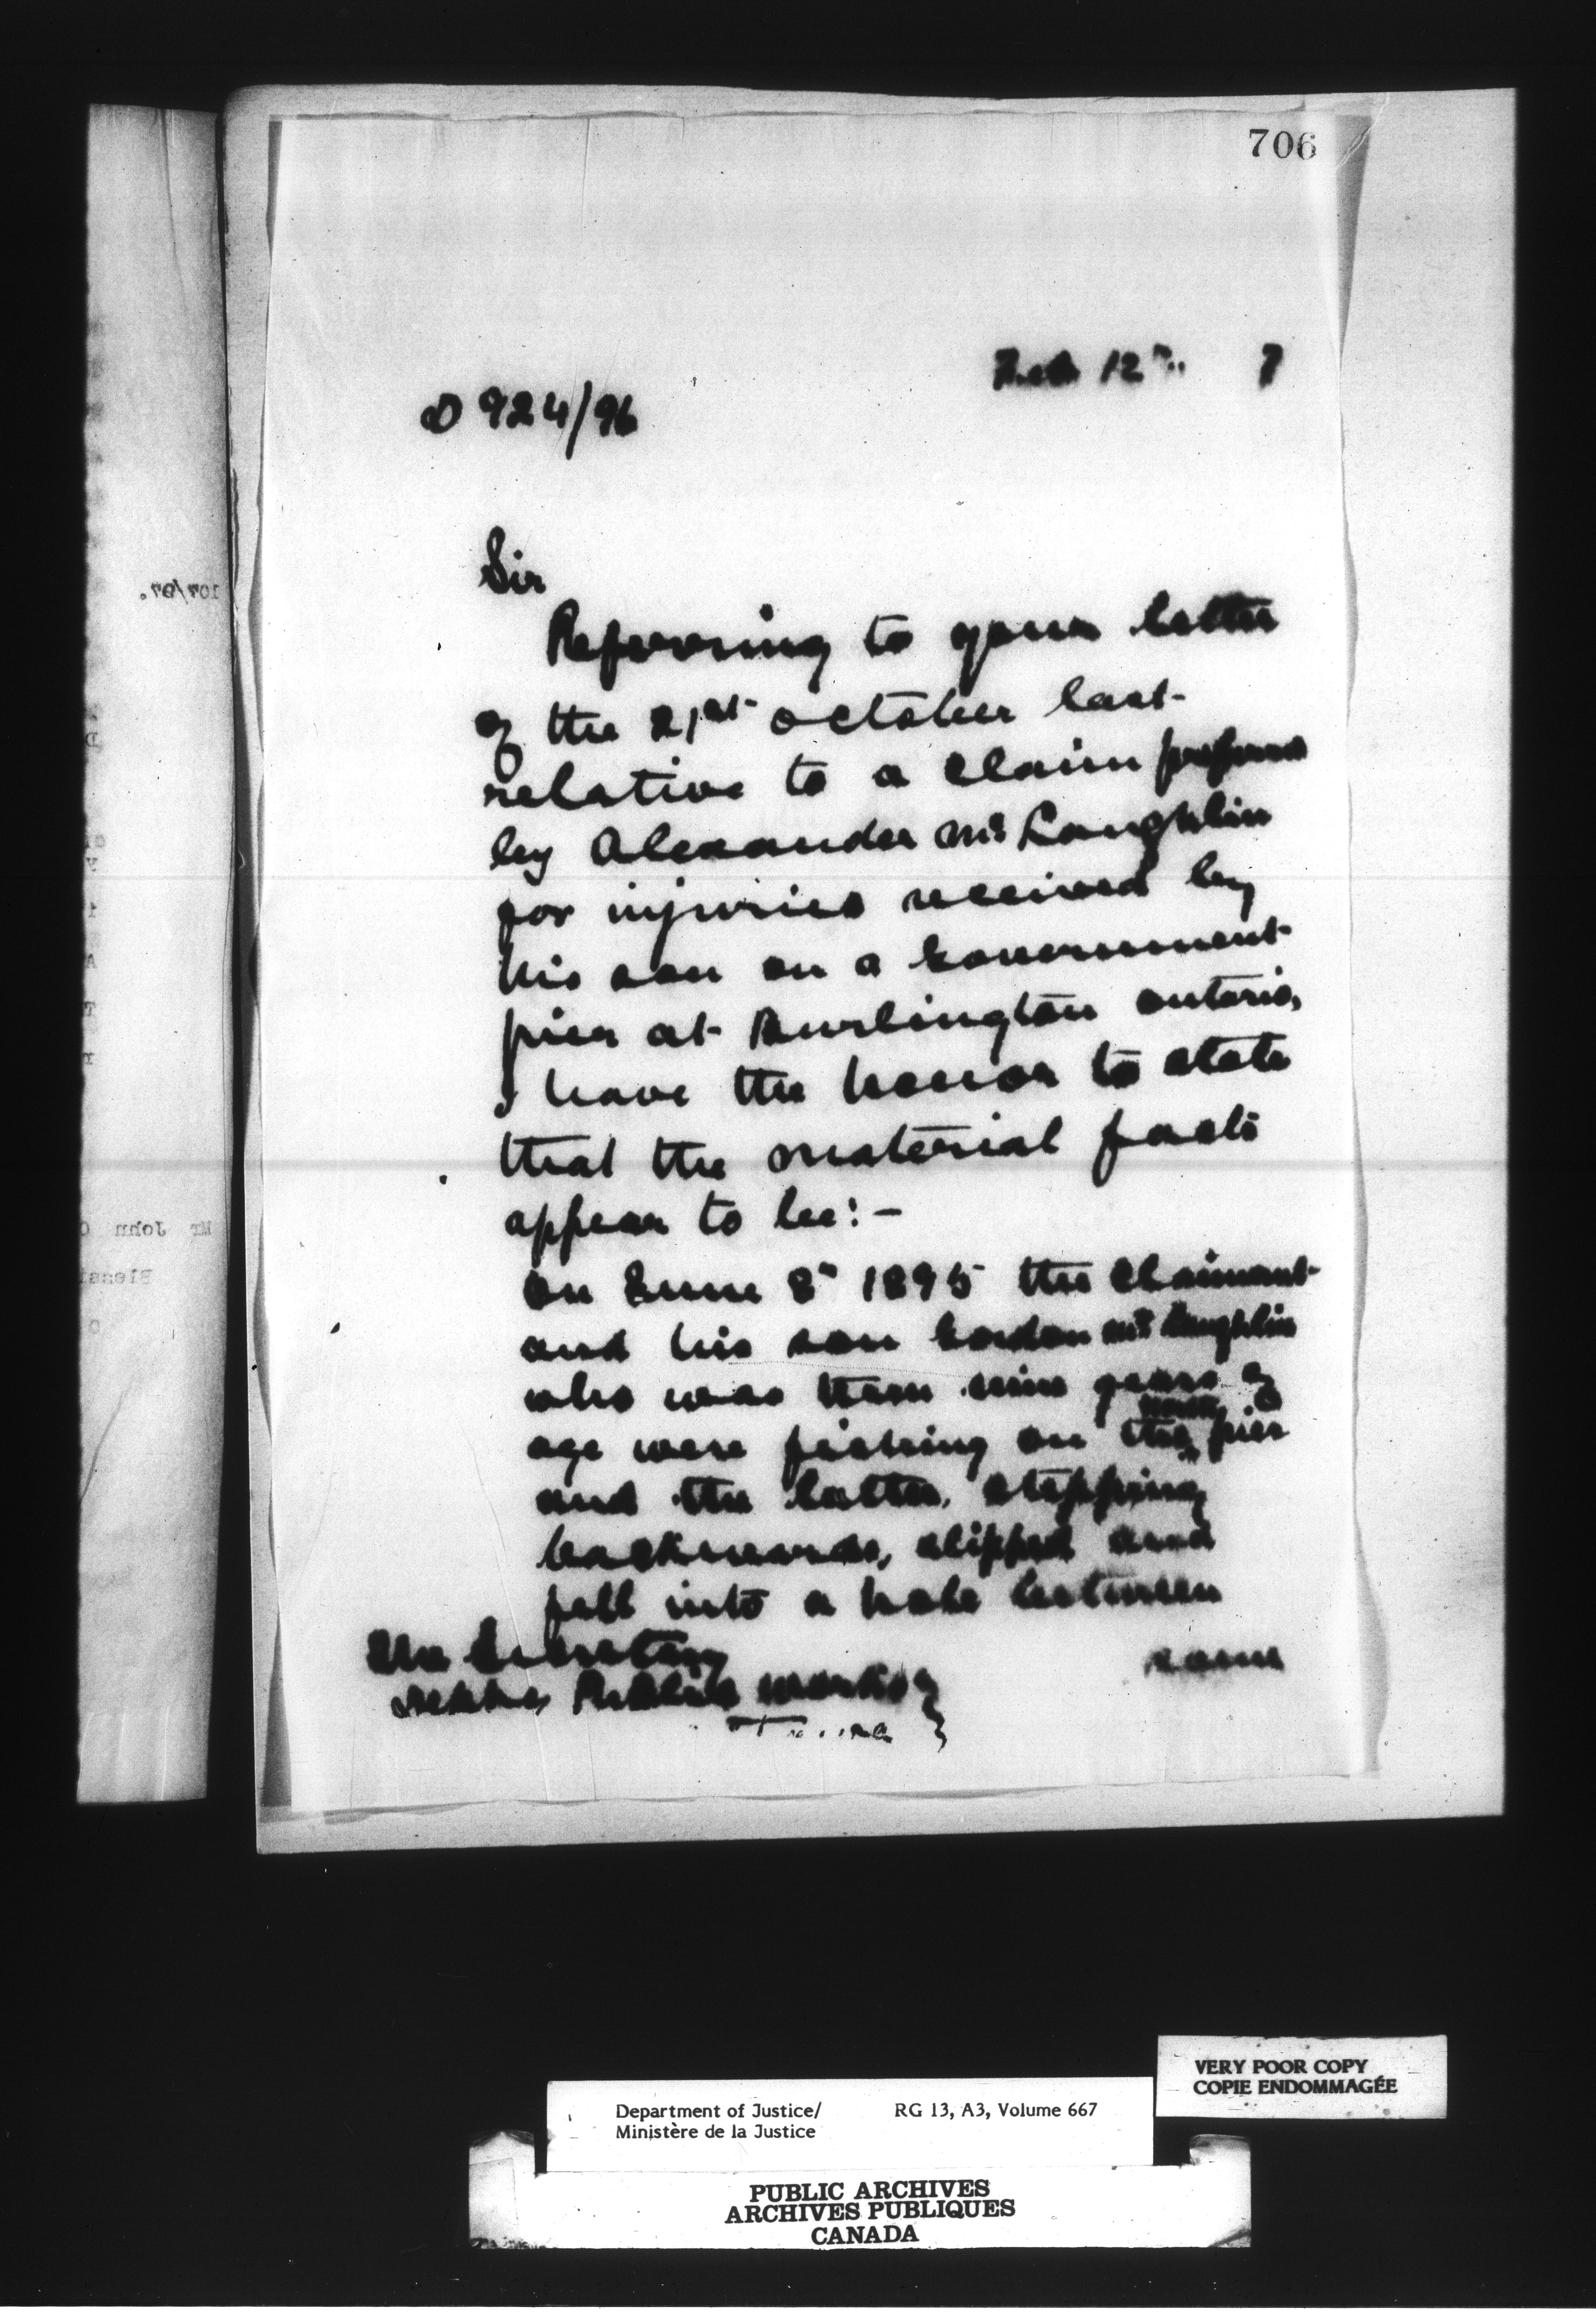 706
Feb 12th 7
D 924/96
Sir
Referring to your letter
of the 21st October last
relative to a claim preferred
by Alexander McLaughlin
for injuries received by
his son on a Government
pier at Burlington Ontario,
I have the honor to state
that the material facts
appear to be:-
On June 8th 1895 the claimant
and his son Gordon McLaughlin
who was then nine years of
age were fishing on the pier
and the latter, stepping
backwards, slipped and
fell into a hole between
some
The Secretary
Public Works
107/97.
Mr John
VERY POOR COPY
COPIE ENDOMMAGÉE
Department of Justice/ RG 13, A3, Volume 667
Ministère de la Justice
PUBLIC ARCHIVES
ARCHIVES PUBLIQUES
CANADA